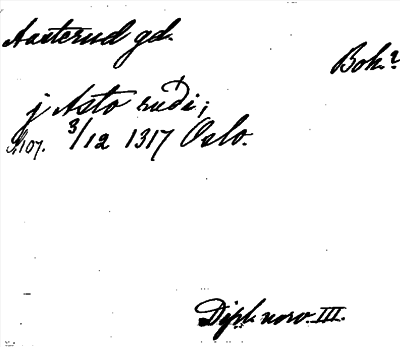 Aasterud gd.
Bok.?
j Asto ruði;
No 107. 3/12 1317 Oslo.
Dipl. norv. III.